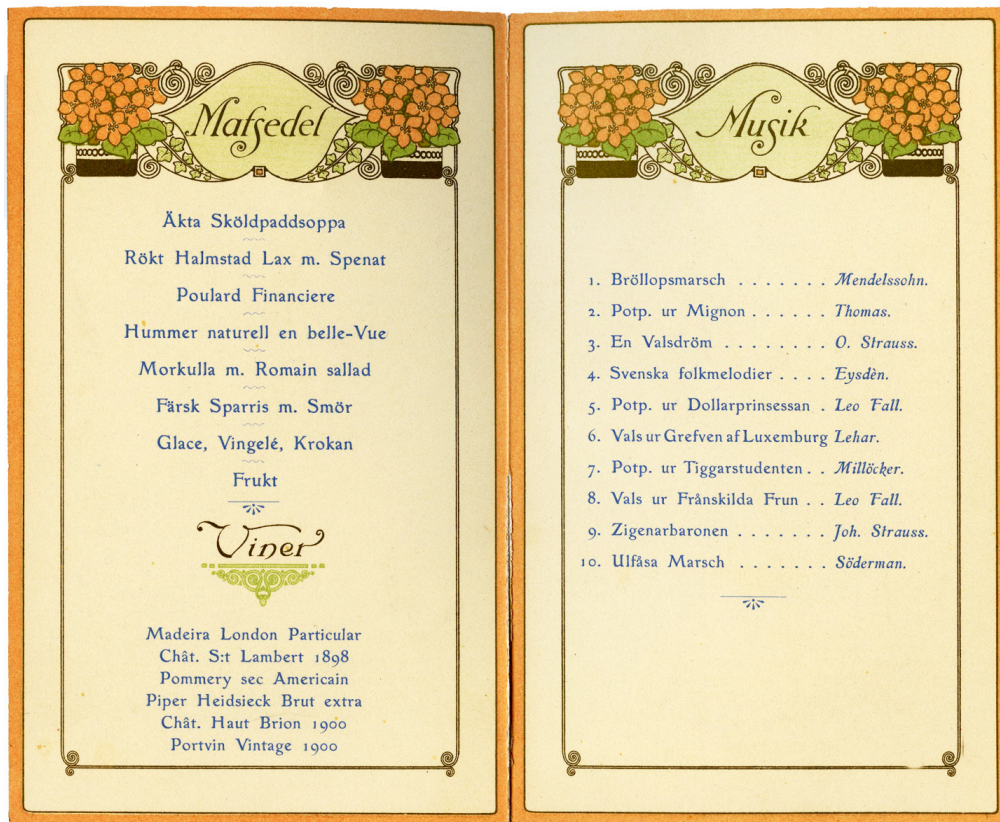 Matsedel
Äkta Sköldpaddsoppa
Rökt Halmstad Lax m. Spenat
Poulard Financiere
Hummer naturell en belle-Vue
Morkulla m. Romain sallad
Färsk Sparris m. Smör
Glace, Vingelé, Krokan
Frukt
Viner
Madeira London Particular
Chât. S:t Lambert 1898
Pommery sec Americain
Piper Heidsieck Brut extra
Chât. Haut Brion 1900
Portvin Vintage 1900
Musik
1. Bröllopsmarsch . . . . . . . Mendelssohn.
2. Potp. ur Mignon . . . . . . Thomas.
3. En Valsdröm . . . . . . . . O. Strauss.
4. Svenska folkmelodier . . . . Eysdèn.
5. Potp. ur Dollarprinsessan . Leo Fall.
6. Vals ur Grefven af Luxemburg Lehar.
7. Potp. ur Tiggarstudenten . . Millöcker.
8. Vals ur Frånskilda Frun . . Leo Fall.
9. Zigenarbaronen . . . . . . . Joh. Strauss.
10. Ulfåsa Marsch . . . . . . . Söderman.